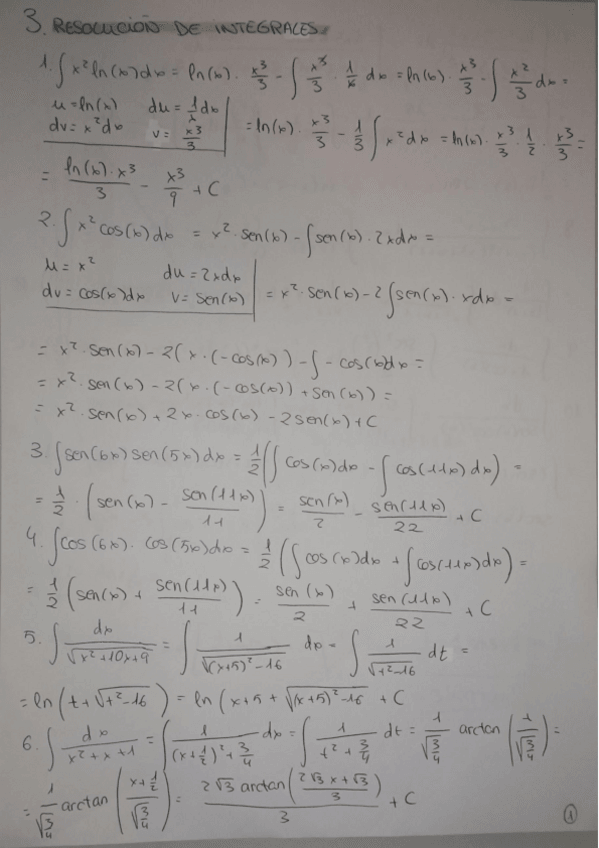 3. RESOLUCIÓN DE INTEGRALES.
1. ∫ x² ln(x) dx = ln(x) · x³/3 - ∫ x³/3 · 1/x dx = ln(x) · x³/3 - ∫ x²/3 dx =
u = ln(x) du = 1/x dx
dv = x² dx v = x³/3
= ln(x) · x³/3 - 1/3 ∫ x² dx = ln(x) · x³/3 · 1/2 · x³/3 =
= ln(x) · x³/3 - x³/9 + C
2. ∫ x² cos(x) dx = x² · sen(x) - ∫ sen(x) · 2x dx =
u = x² du = 2x dx
dv = cos(x) dx v = sen(x)
= x² · sen(x) - 2 ∫ sen(x) · x dx =
= x² · sen(x) - 2(x · (-cos(x)) - ∫ - cos(x) dx =
= x² · sen(x) - 2(x · (-cos(x)) + sen(x)) =
= x² · sen(x) + 2x · cos(x) - 2 sen(x) + C
3. ∫ sen(6x) sen(5x) dx = 1/2 (∫ cos(x) dx - ∫ cos(11x) dx) =
= 1/2 · (sen(x) - sen(11x)/11) = sen(x)/2 - sen(11x)/22 + C
4. ∫ cos(6x) · cos(5x) dx = 1/2 (∫ cos(x) dx + ∫ cos(11x) dx) =
= 1/2 (sen(x) + sen(11x)/11) = sen(x)/2 + sen(11x)/22 + C
5. ∫ dx/√(x²+10x+9) = ∫ 1/√((x+5)²-16) dx = ∫ 1/√(t²-16) dt =
= ln(t + √(t²-16)) = ln(x+5 + √((x+5)²-16) + C
6. ∫ dx/(x²+x+1) = ∫ 1/((x+1/2)²+3/4) dx = ∫ 1/(t²+3/4) dt = 1/√(3/4) arctan(1/√(3/4)) =
= 1/√(3/4) arctan((x+1/2)/√(3/4)) = 2√3 arctan((2√3x+√3)/3)/3 + C
1